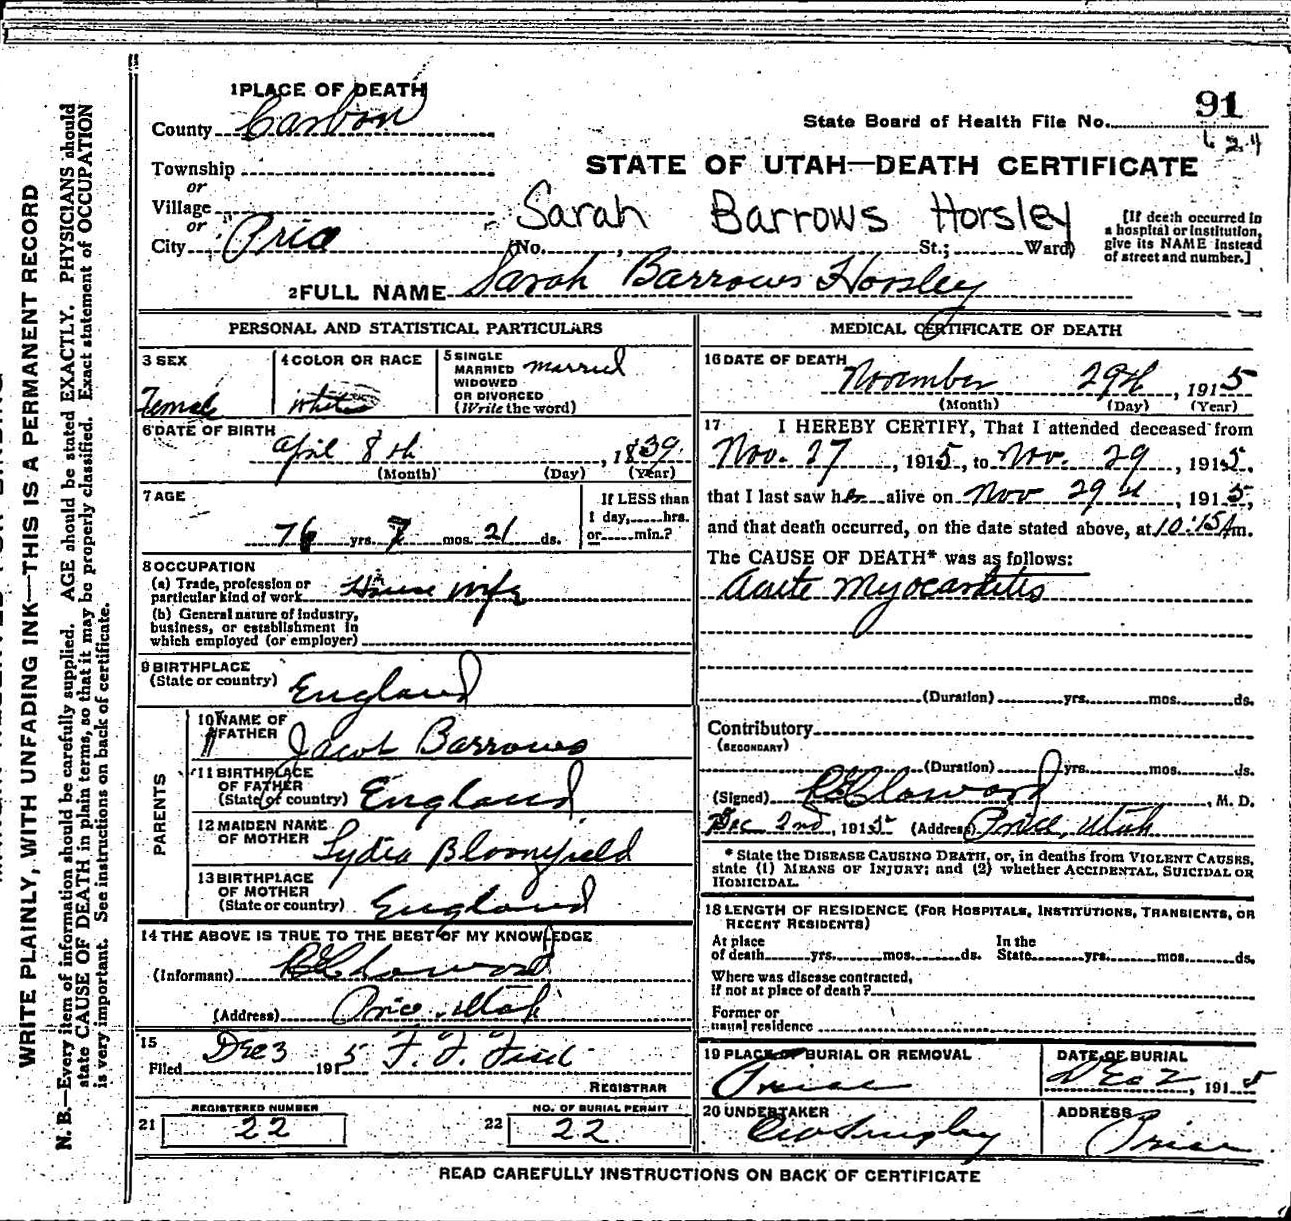 1 PLACE OF DEATH
County Carbon
State Board of Health File No. 91
624
Township
or
Village
or
City Price
STATE OF UTAH—DEATH CERTIFICATE
Sarah Barrows Horsley
(No. , St.; Ward)
[If death occurred in
a hospital or institution,
give its NAME instead
of street and number.]
2 FULL NAME Sarah Barrows Horsley
PERSONAL AND STATISTICAL PARTICULARS
3 SEX
Female
4 COLOR OR RACE
White
5 SINGLE
MARRIED
WIDOWED
OR DIVORCED
(Write the word)
married
6 DATE OF BIRTH
April 8th, 1839
(Month) (Day) (Year)
7 AGE
76 yrs. 7 mos. 21 ds.
If LESS than
1 day, hrs.
or min.?
8 OCCUPATION
(a) Trade, profession or
particular kind of work House wife
(b) General nature of industry,
business, or establishment in
which employed (or employer)
9 BIRTHPLACE
(State or country) England
PARENTS
10 NAME OF
FATHER Jacob Barrows
11 BIRTHPLACE
OF FATHER
(State or country) England
12 MAIDEN NAME
OF MOTHER Lydia Bloomfield
13 BIRTHPLACE
OF MOTHER
(State or country) England
14 THE ABOVE IS TRUE TO THE BEST OF MY KNOWLEDGE
(Informant)
(Address) Price, Utah
15
Filed Dec 3 1915 F. F. Fisk
REGISTRAR
21 REGISTERED NUMBER
22
22 NO. OF BURIAL PERMIT
22
MEDICAL CERTIFICATE OF DEATH
16 DATE OF DEATH
November 29th, 1915
(Month) (Day) (Year)
17 I HEREBY CERTIFY, That I attended deceased from
Nov. 27, 1915, to Nov. 29, 1915,
that I last saw her alive on Nov 29th, 1915,
and that death occurred, on the date stated above, at 10:15 Am.
The CAUSE OF DEATH* was as follows:
Acute Myocarditis
(Duration) yrs. mos. ds.
Contributory
(SECONDARY)
(Duration) yrs. mos. ds.
(Signed) , M. D.
Dec 2nd, 1915 (Address) Price, Utah
* State the DISEASE CAUSING DEATH, or, in deaths from VIOLENT CAUSES,
state (1) MEANS OF INJURY; and (2) whether ACCIDENTAL, SUICIDAL OR
HOMICIDAL.
18 LENGTH OF RESIDENCE (FOR HOSPITALS, INSTITUTIONS, TRANSIENTS, OR
RECENT RESIDENTS)
At place
of death yrs. mos. ds.
In the
State yrs. mos. ds.
Where was disease contracted,
If not at place of death?
Former or
usual residence
19 PLACE OF BURIAL OR REMOVAL
Price
DATE OF BURIAL
Dec 2, 1915
20 UNDERTAKER
ADDRESS
Price
READ CAREFULLY INSTRUCTIONS ON BACK OF CERTIFICATE
WRITE PLAINLY, WITH UNFADING INK—THIS IS A PERMANENT RECORD
N. B.—Every item of information should be carefully supplied. AGE should be stated EXACTLY. PHYSICIANS should
state CAUSE OF DEATH in plain terms, so that it may be properly classified. Exact statement of OCCUPATION
is very important. See instructions on back of certificate.